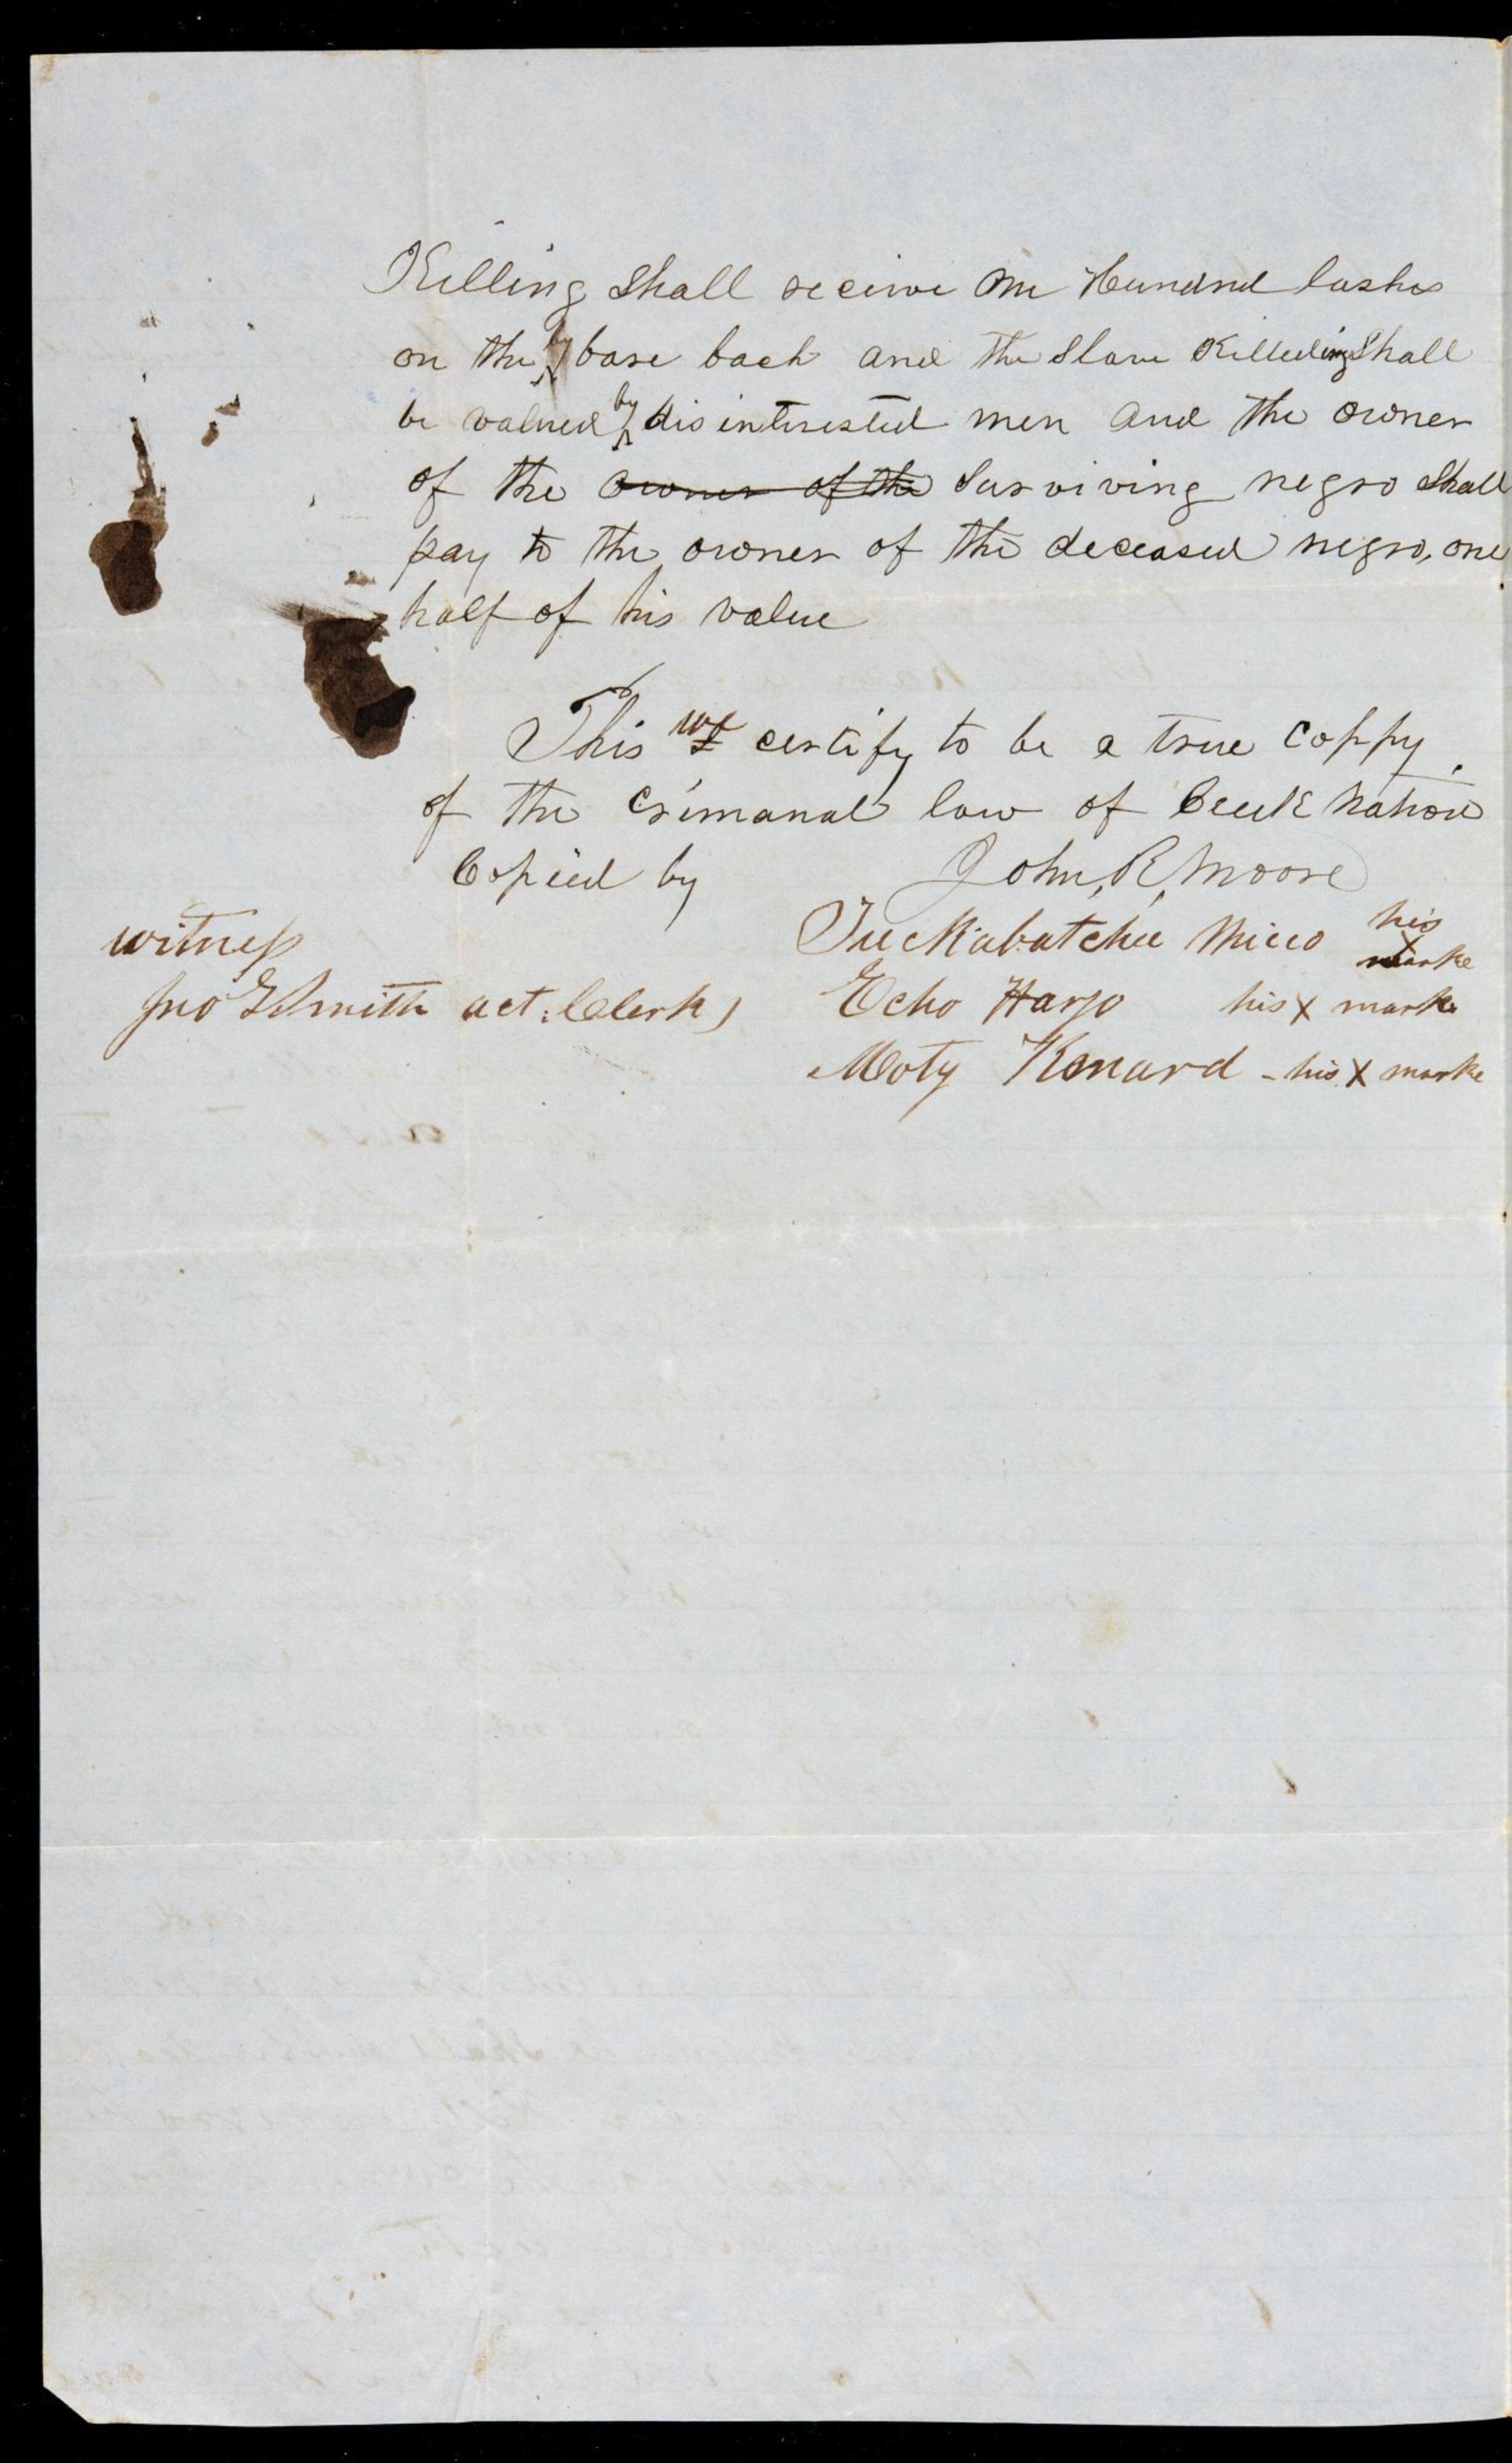 Killing Shall receive one Hundred lashes
on the bare back and the Slave Killed Shall
be valued by disinterested men and the owner
of the owner of the Surviving negro Shall
pay to the owner of the deceased negro, one
half of his value
This we certify to be a true Coppy
of the Crimanal law of Creek Nation
Copied by John, R, Moore
witness Tuckabatchee Micco his X marke
Jno G Smith act: Clerk Echo Harjo his X mark
Moty Kenard - his X marke